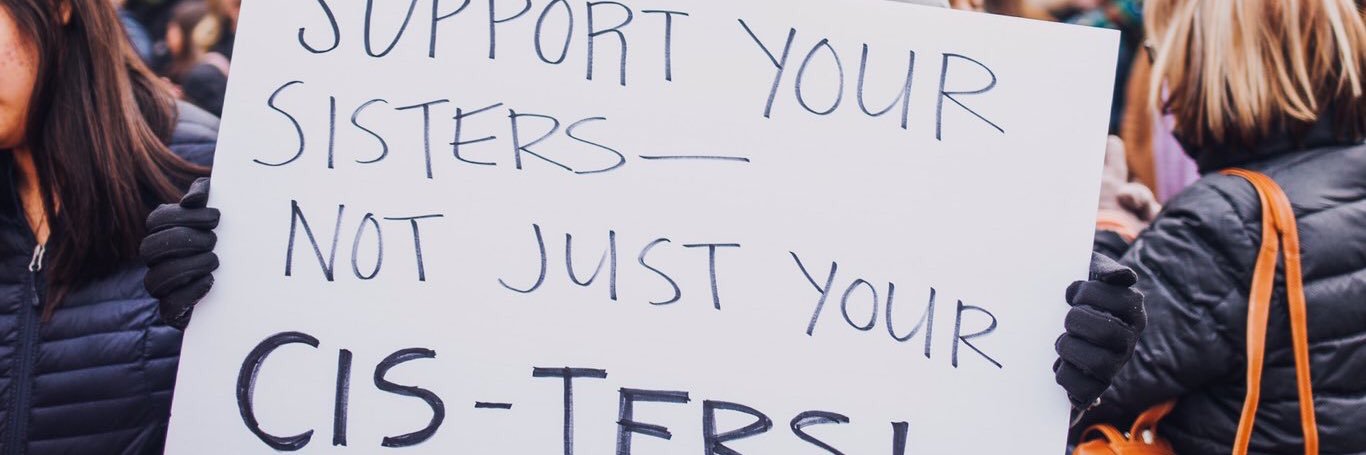 SUPPORT YOUR
SISTERS—
NOT JUST YOUR
CIS-TERS!